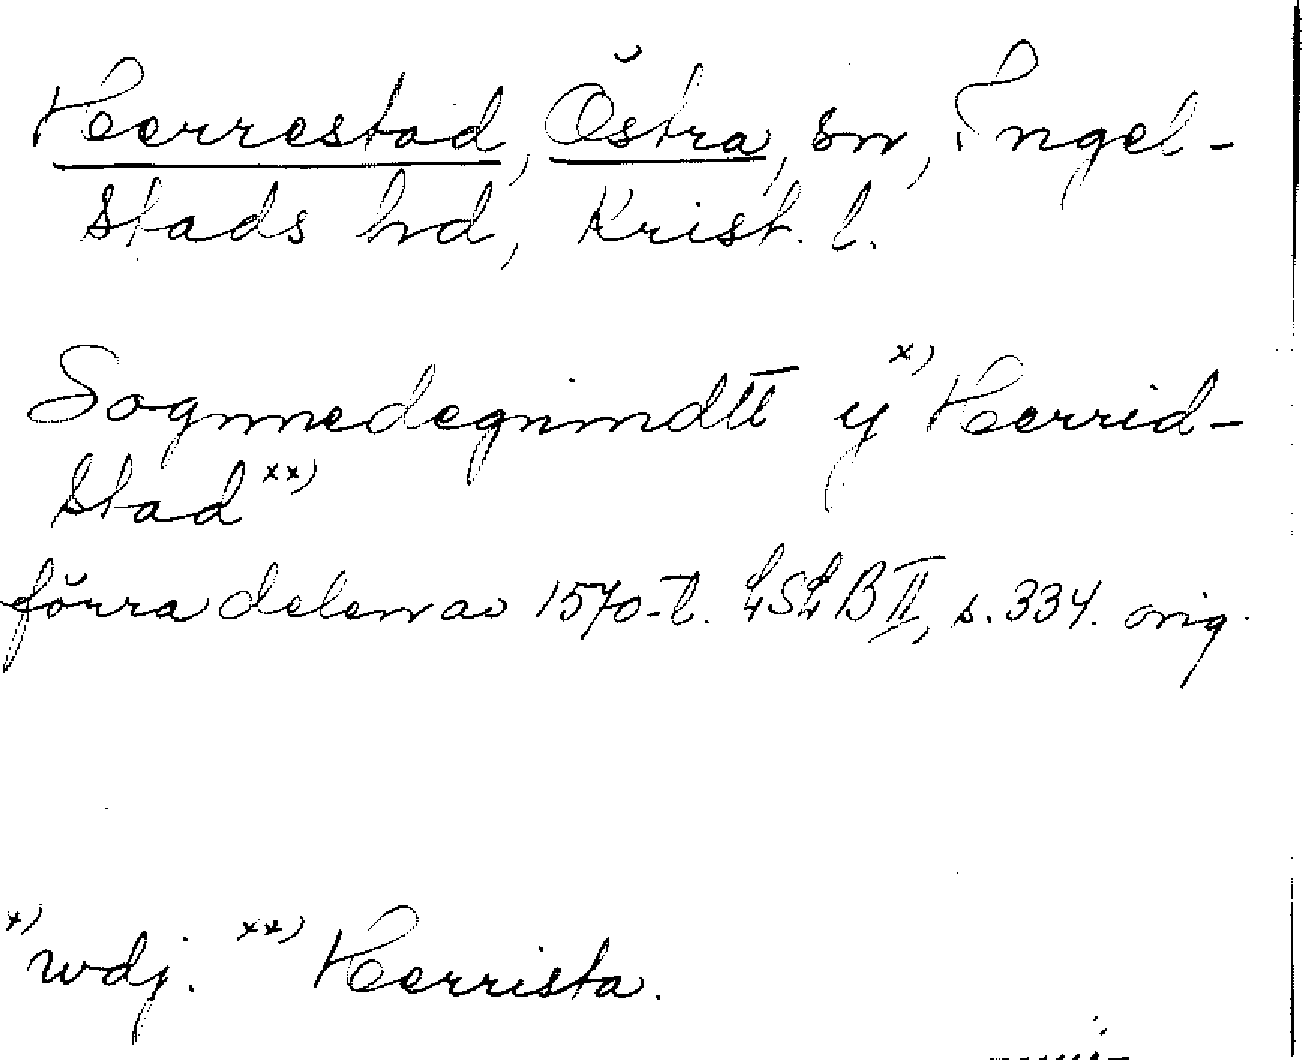 Herrestad, Östra, sn, Ingel-
stads hd, Krist. l.
Sognnedegnindtt y x) Herrid-
stad xx)
förra delen av 1570-t. LSLB II, s. 334. orig.
x) wdj. xx) Herrista.